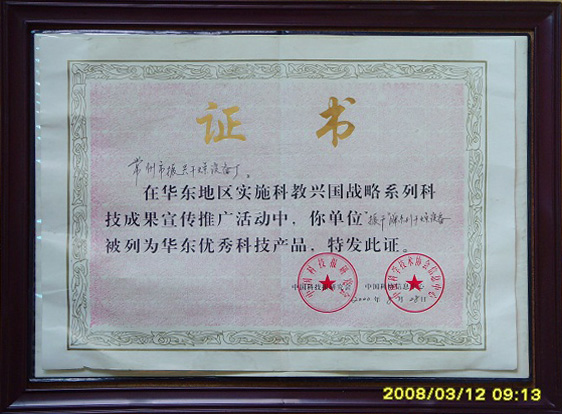 证书
常州市振兴干燥设备厂。
在华东地区实施科教兴国战略系列科
技成果宣传推广活动中，你单位"振干"牌系列干燥设备
被列为华东优秀科技产品，特发此证。
中国科技报研究会 中国科协信息中心
2000年 月28日
2008/03/12 09:13